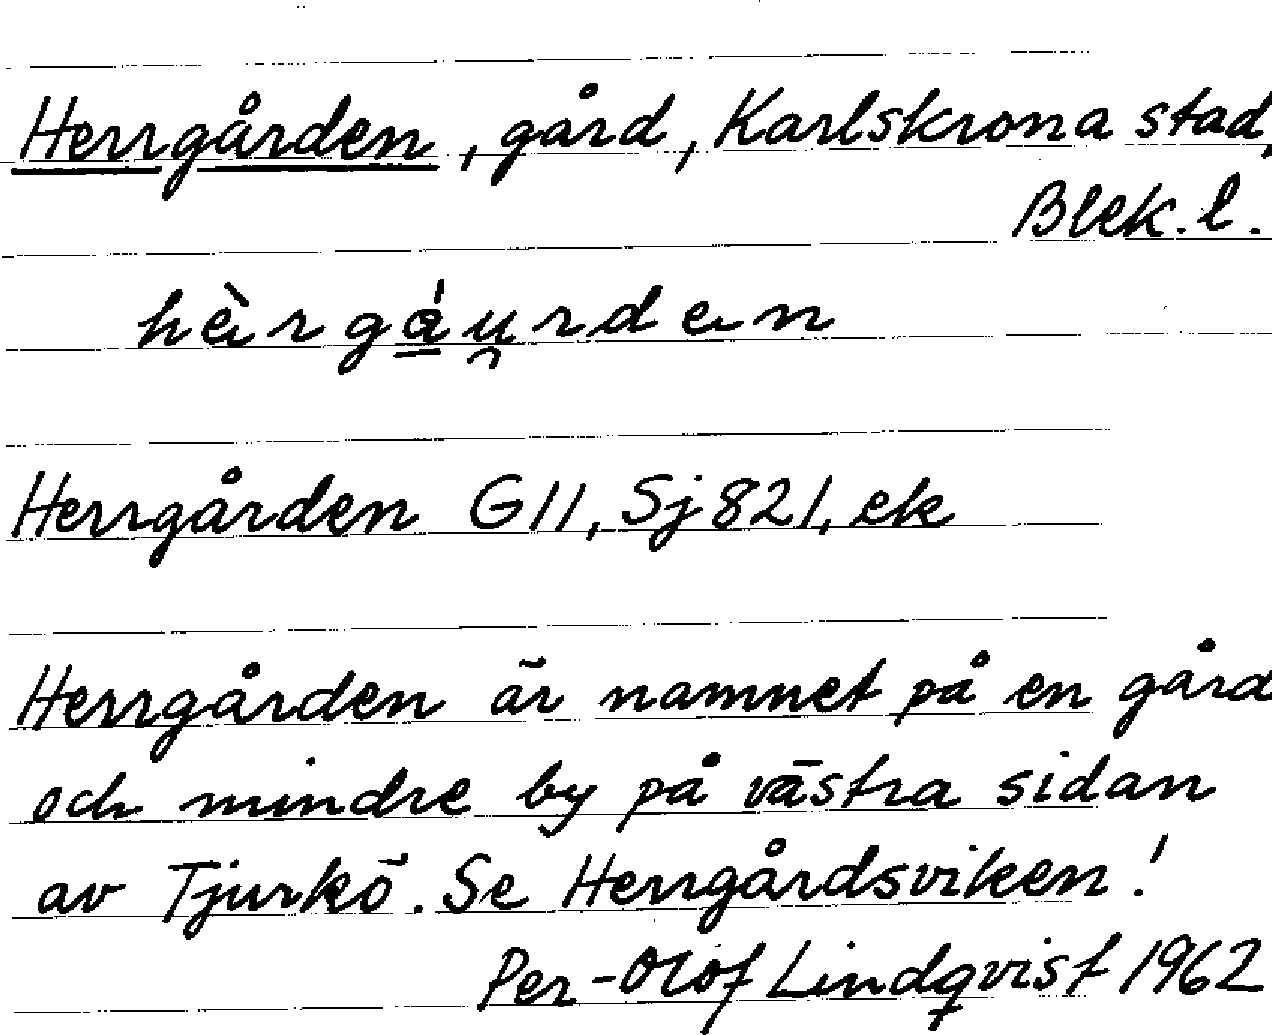 Herrgården, gård, Karlskrona stad,
Blek. l.
hæ̀rgá̱u̯rdæn
Herrgården G11, Sj 821, ek
Herrgården är namnet på en gård
och mindre by på västra sidan
av Tjurkö. Se Herrgårdsviken!
Per-Olof Lindqvist 1962